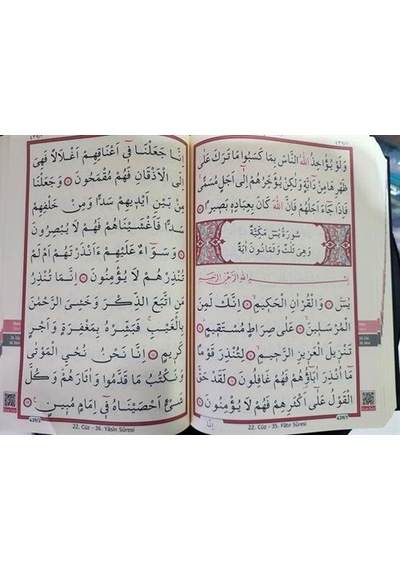 وَلَوْ يُؤَاخِذُ اللّٰهُ النَّاسَ بِمَا كَسَبُوا مَا تَرَكَ عَلٰى
ظَهْرِهَا مِنْ دَٓابَّةٍ وَلٰكِنْ يُؤَخِّرُهُمْ اِلٰٓى اَجَلٍ مُسَمًّى
فَاِذَا جَٓاءَ اَجَلُهُمْ فَاِنَّ اللّٰهَ كَانَ بِعِبَادِه۪ بَص۪يرًا
سُورَةُ يٰسٓ مَكِّيَّةٌ
وَهِيَ ثَلٰثٌ وَثَمَانُونَ اٰيَةً
بِسْمِ اللّٰهِ الرَّحْمٰنِ الرَّح۪يمِ
يٰسٓ ۞ وَالْقُرْاٰنِ الْحَك۪يمِ ۞ اِنَّكَ لَمِنَ
الْمُرْسَل۪ينَ ۞ عَلٰى صِرَاطٍ مُسْتَق۪يمٍ ۞
تَنْز۪يلَ الْعَز۪يزِ الرَّح۪يمِ ۞ لِتُنْذِرَ قَوْمًا
مَٓا اُنْذِرَ اٰبَٓاؤُ۬هُمْ فَهُمْ غَافِلُونَ ۞ لَقَدْ حَقَّ
الْقَوْلُ عَلٰٓى اَكْثَرِهِمْ فَهُمْ لَا يُؤْمِنُونَ ۞
اِنَّا
22. Cüz - 35. Fâtır Sûresi
439/1
اِنَّا جَعَلْنَا ف۪ٓي اَعْنَاقِهِمْ اَغْلَالًا فَهِيَ
اِلَى الْاَذْقَانِ فَهُمْ مُقْمَحُونَ ۞ وَجَعَلْنَا
مِنْ بَيْنِ اَيْد۪يهِمْ سَدًّا وَمِنْ خَلْفِهِمْ
سَدًّا فَاَغْشَيْنَاهُمْ فَهُمْ لَا يُبْصِرُونَ
۞ وَسَوَٓاءٌ عَلَيْهِمْ ءَاَنْذَرْتَهُمْ اَمْ لَمْ
تُنْذِرْهُمْ لَا يُؤْمِنُونَ ۞ اِنَّمَا تُنْذِرُ
مَنِ اتَّبَعَ الذِّكْرَ وَخَشِيَ الرَّحْمٰنَ
بِالْغَيْبِ فَبَشِّرْهُ بِمَغْفِرَةٍ وَاَجْرٍ
كَر۪يمٍ ۞ اِنَّا نَحْنُ نُحْيِ الْمَوْتٰى
وَنَكْتُبُ مَا قَدَّمُوا وَاٰثَارَهُمْ وَكُلَّ
شَيْءٍ اَحْصَيْنَاهُ ف۪ٓي اِمَامٍ مُب۪ينٍ ۞
22. Cüz - 36. Yâsîn Sûresi
439/2